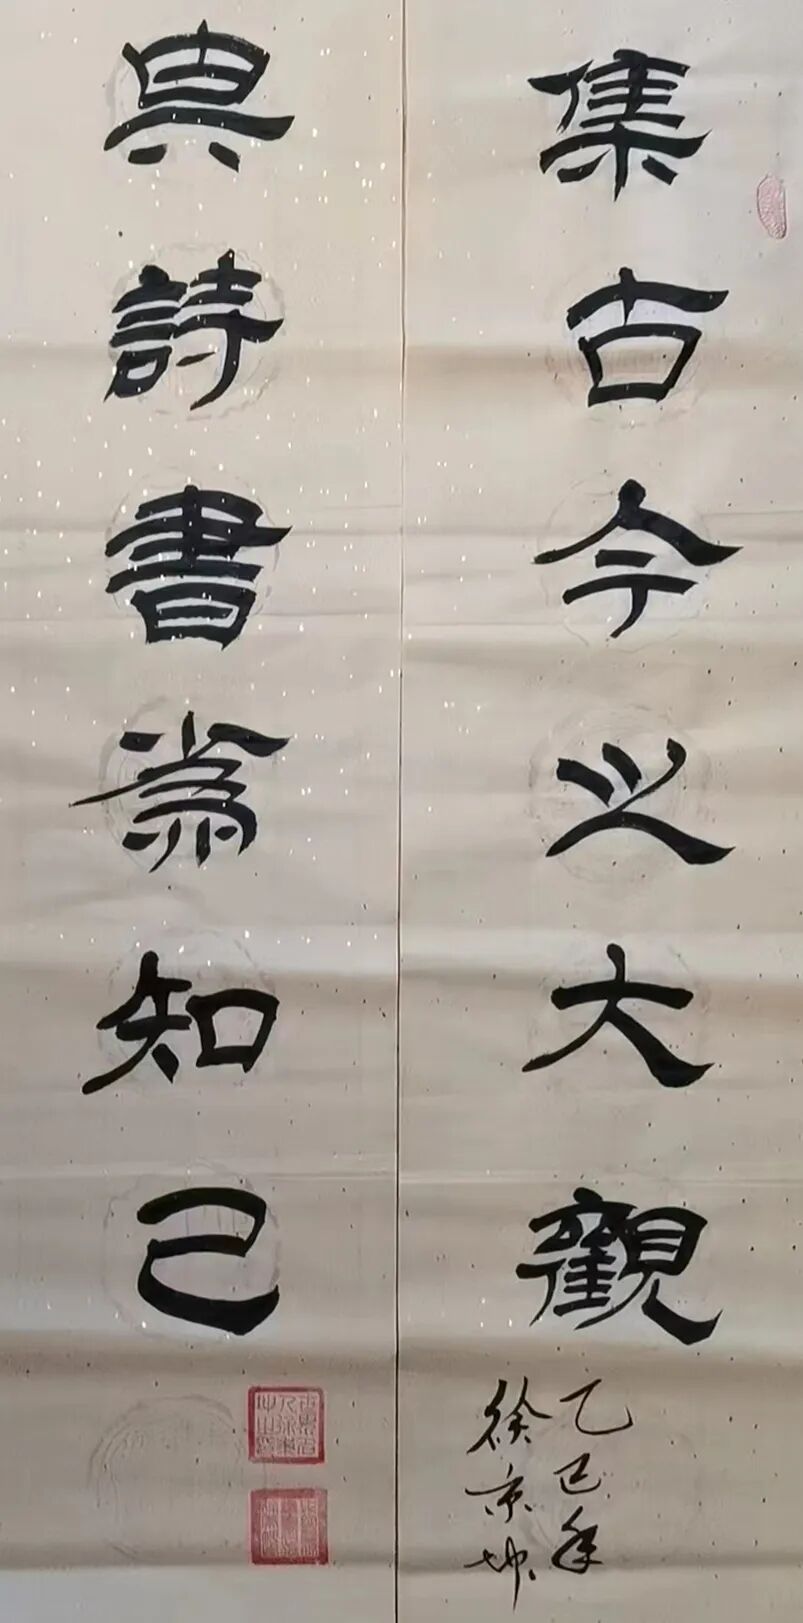 集古今之大觀
乙巳年
徐京坤
與詩書為知己